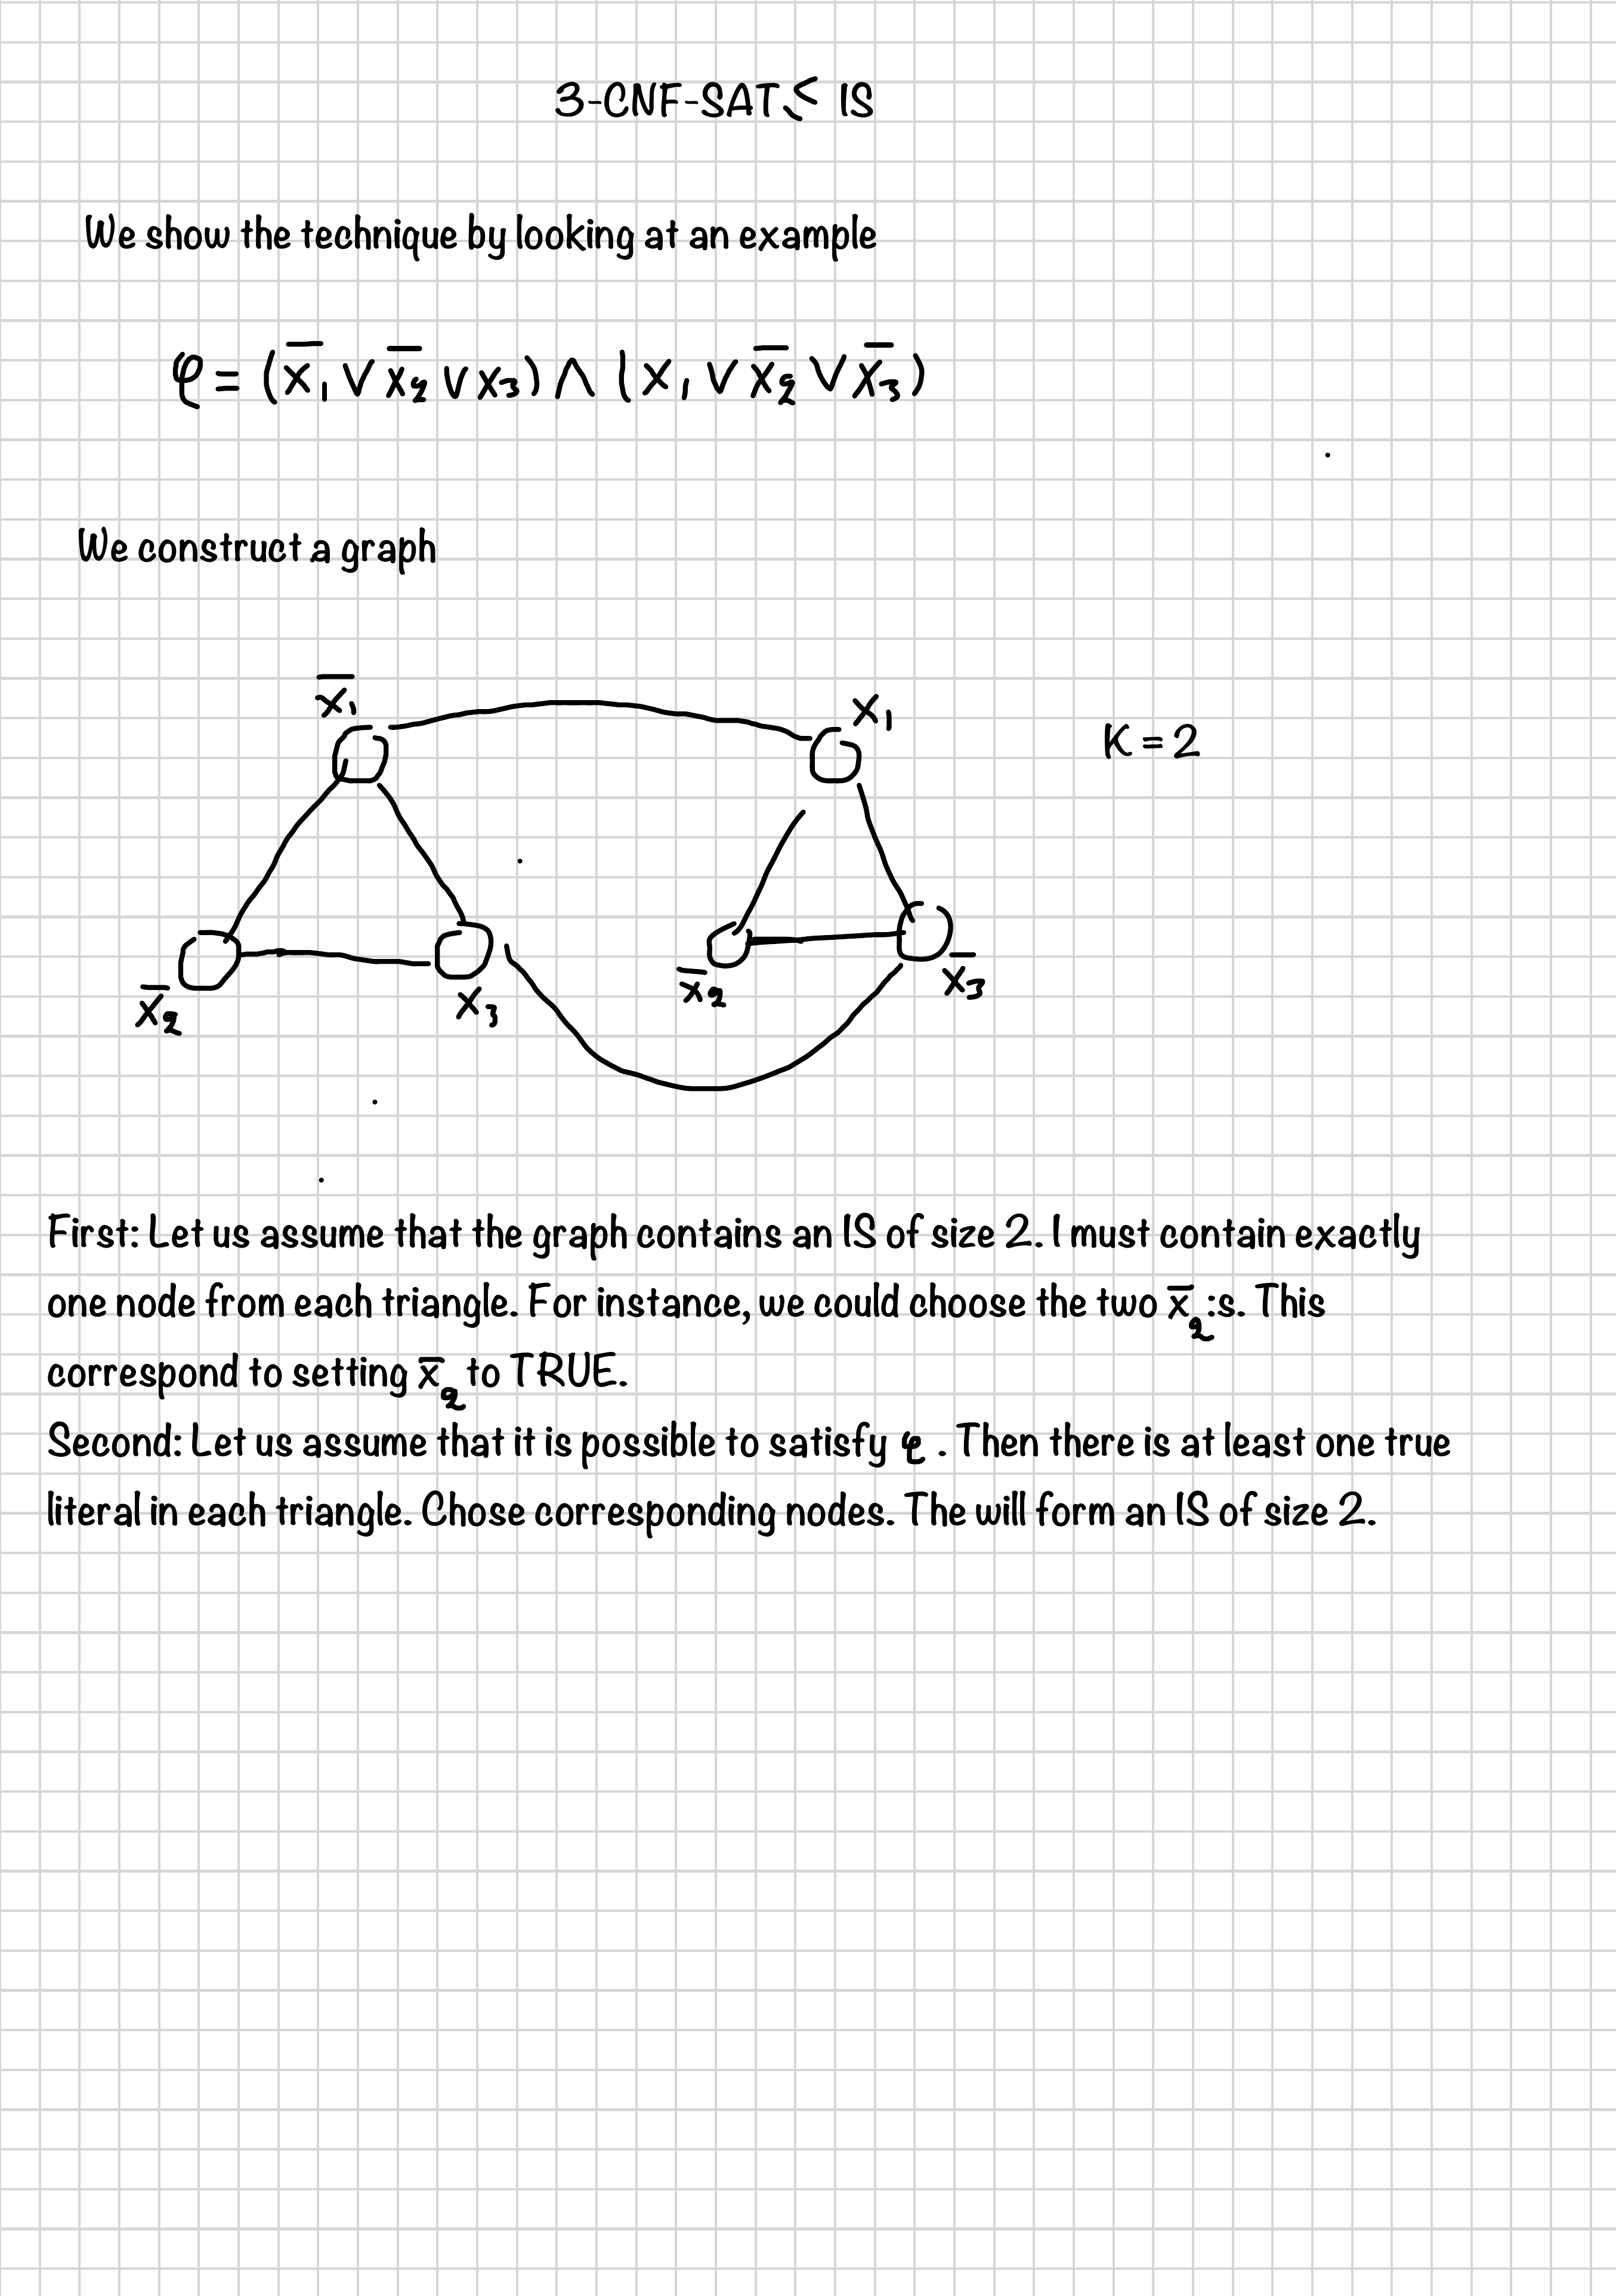 3-CNF-SAT ≤ IS
We show the technique by looking at an example
φ = (x̅₁ ∨ x̅₂ ∨ x₃) ∧ (x₁ ∨ x̅₂ ∨ x̅₃)
We construct a graph
x̅₁
x₁
K = 2
x̅₂
x₃
x̅₂
x̅₃
First: Let us assume that the graph contains an IS of size 2. I must contain exactly
one node from each triangle. For instance, we could choose the two x̅₂:s. This
correspond to setting x̅₂ to TRUE.
Second: Let us assume that it is possible to satisfy φ. Then there is at least one true
literal in each triangle. Chose corresponding nodes. The will form an IS of size 2.